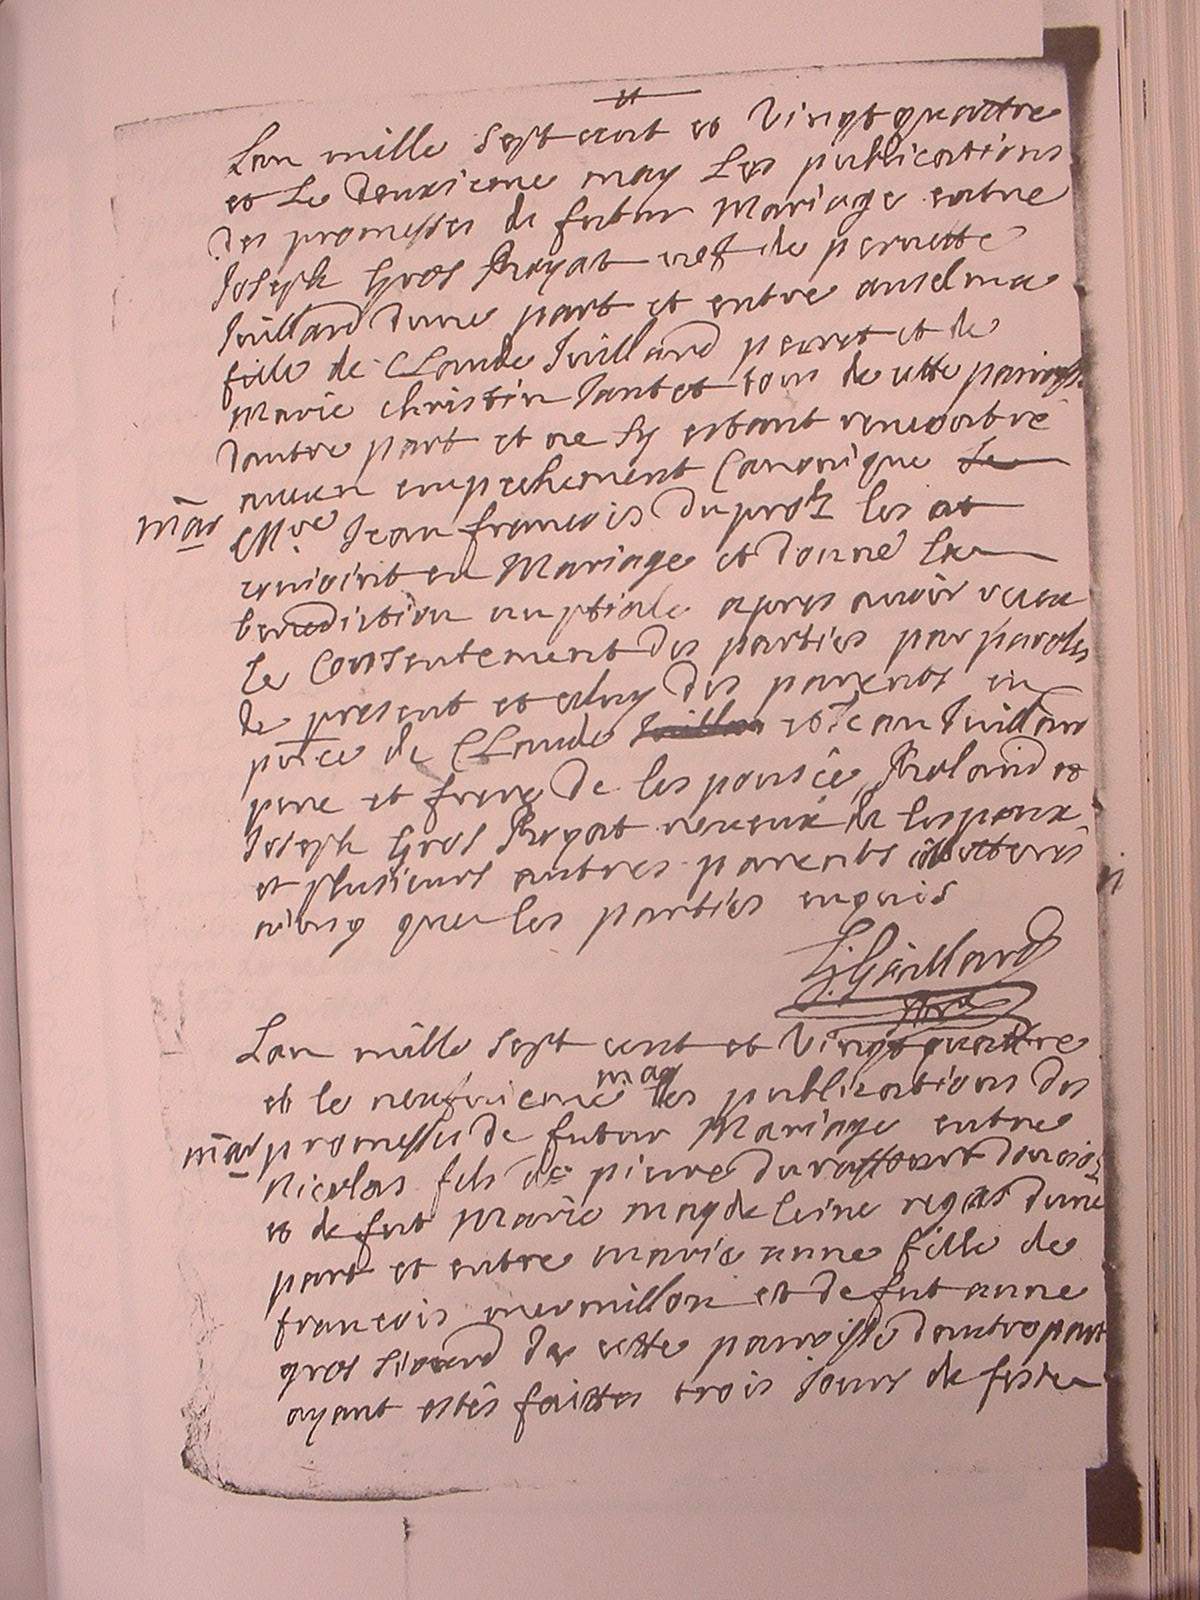 Lan mille sept cent et vingt quattre
et le deuxieme may les publications
des promesses de futur Mariage entre
Joseph Gros Royat vef de pernette
Juillard dune part et entre anselma
fille de Claude Juillard perret et de
Marie christin Jantet tous de cette paroisse
dautre part et ne sy estant rencontré
aucun empechement Canonique
mar
Mre Jean francois Duproz les at
conioint en Mariage et donné la
benediction nuptiale apres avoir receu
le Consentement des parties par paroles
de present et celuy des parents en
pnce de Claude Juillard et Jean Juillard
pere et frere de lespousée, Roland et
Joseph Gros Royat neveux de lespoux
et plusieurs autres parents illetterés
ainsy que les parties enquis
Gaillard
Lan mille sept cent et vingt quattre
et le neufvieme may les publications des
mar
promesses de futur Mariage entre
Nicolas fils de pierre
et de fut Marie magdeleine dune
part et entre marie anne fille de
francois mermillon et de fut anne
gros de cette paroisse dautre part
ayant estés faittes trois Jours de feste